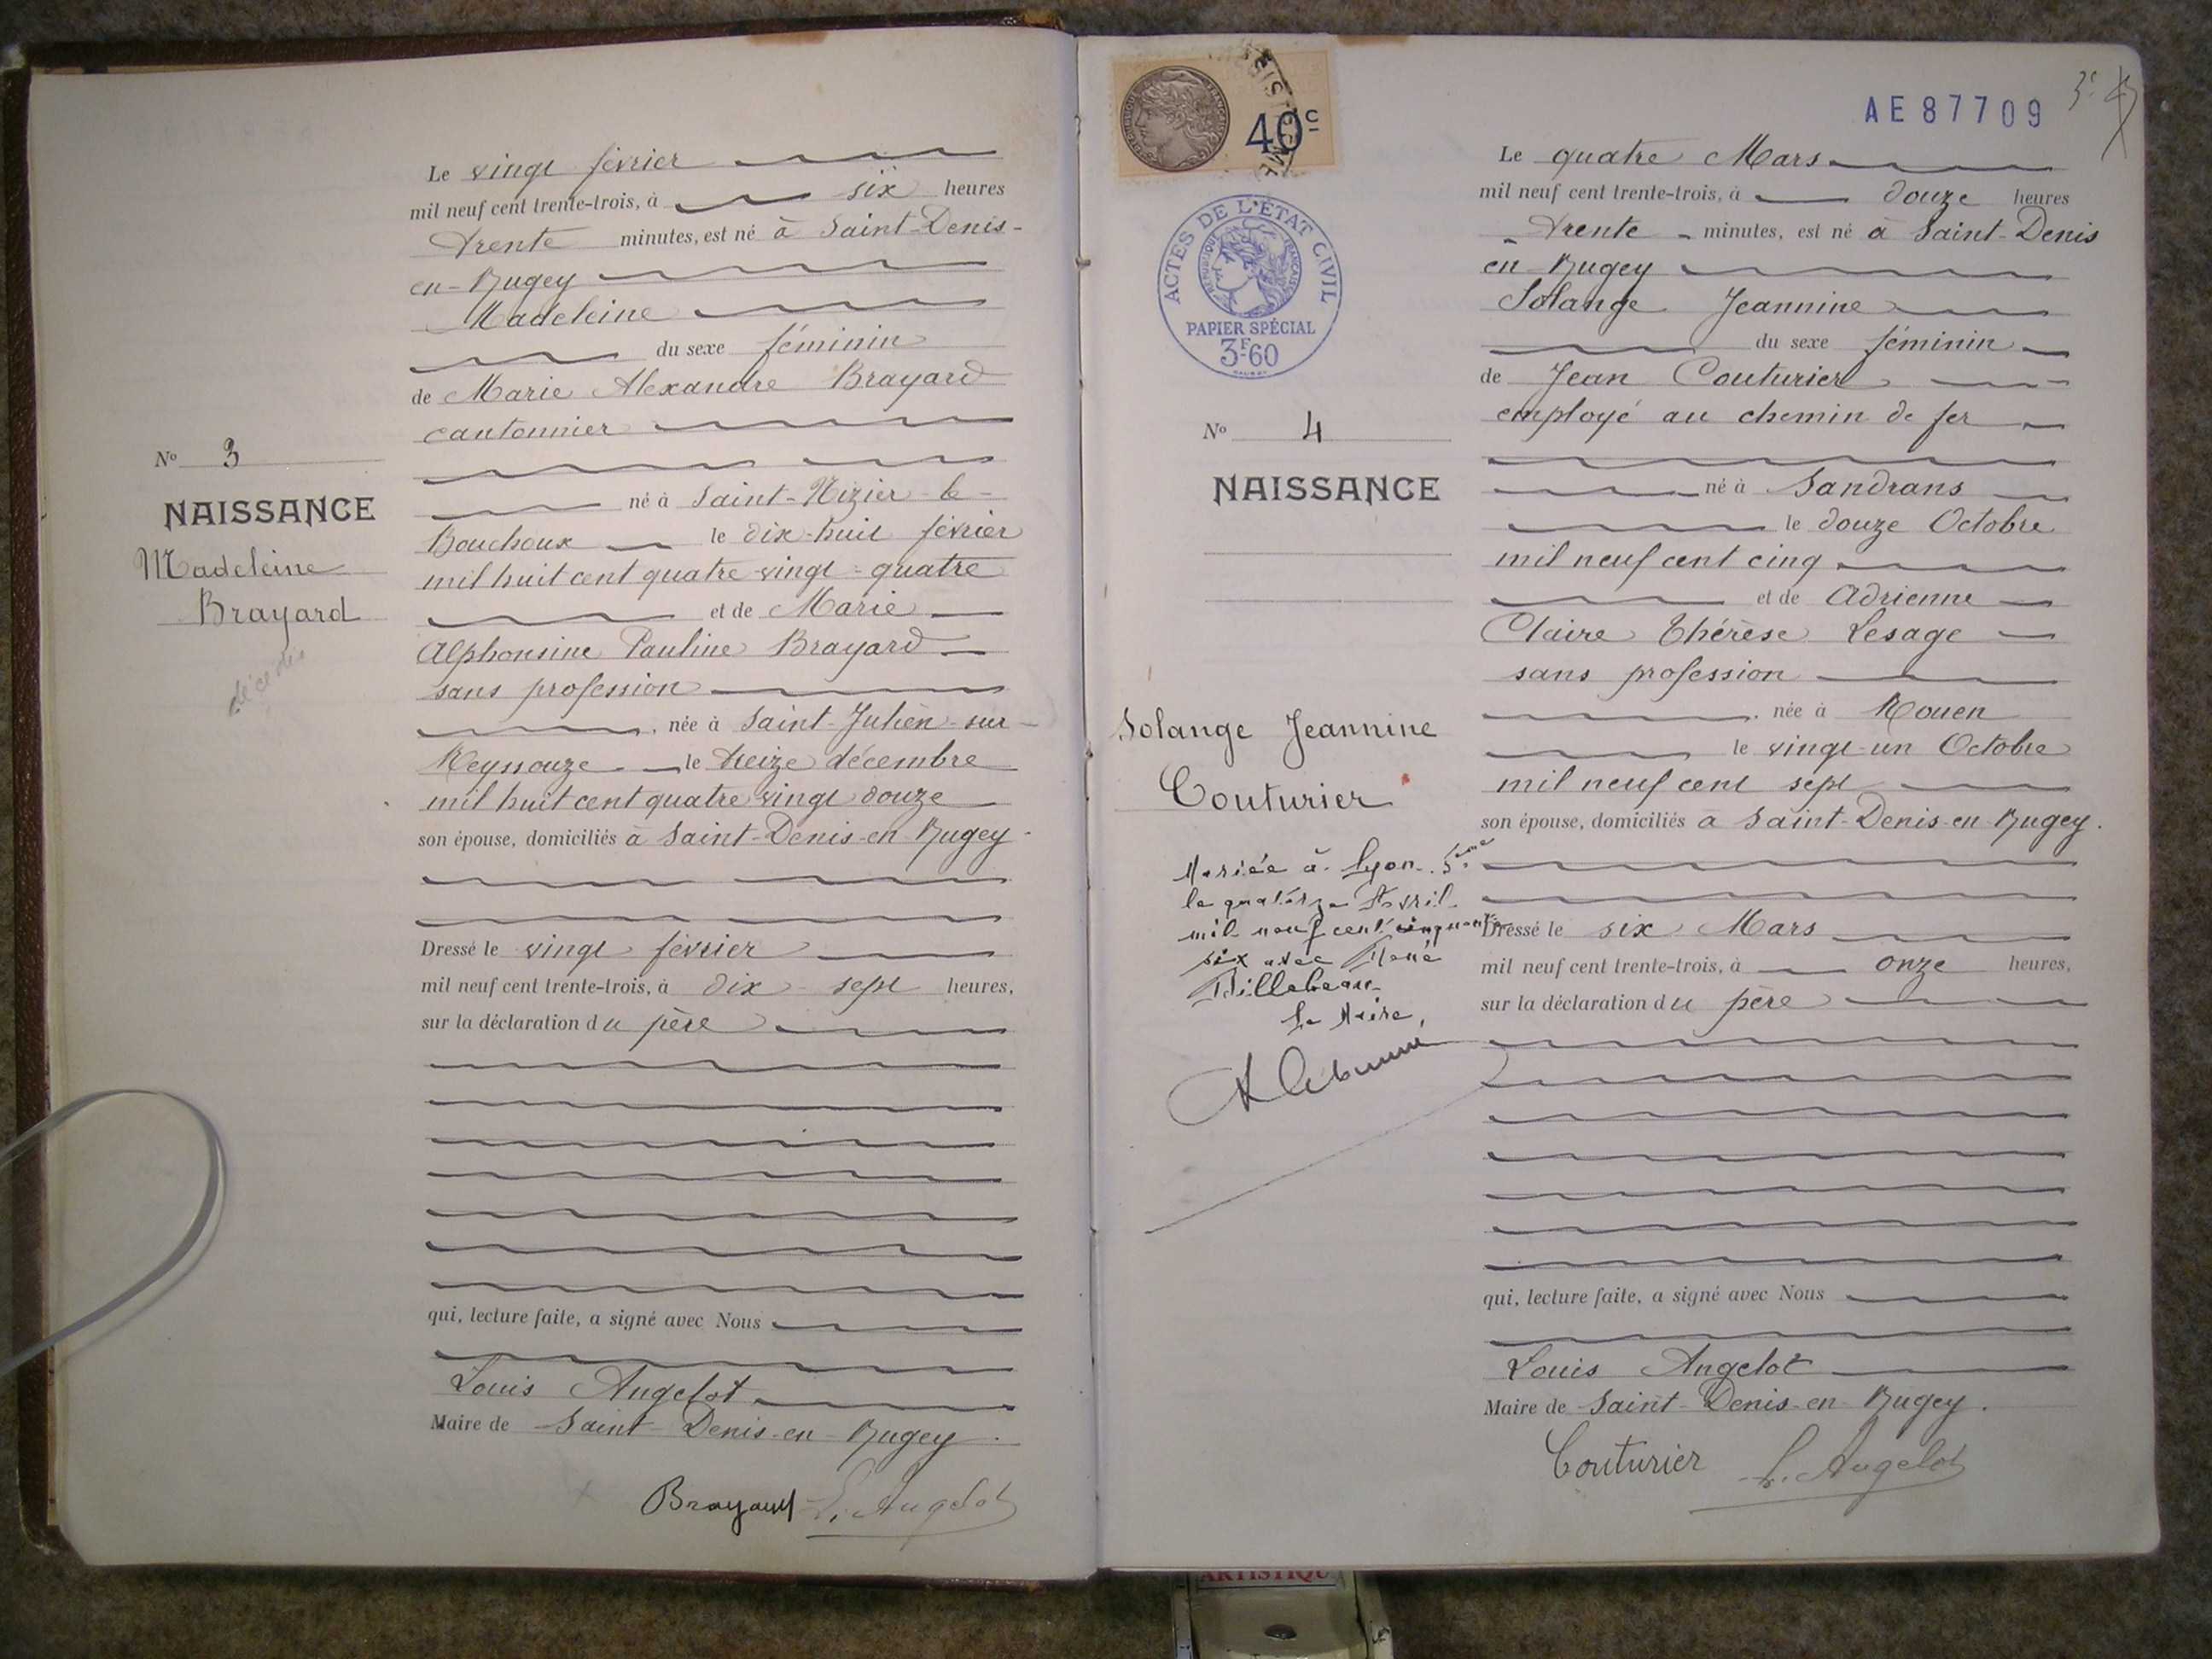 Le vingt février
mil neuf cent trente-trois, à six heures
trente minutes, est né à Saint-Denis-
en-Bugey
Madeleine
du sexe féminin
de Marie Alexandre Brayard
cantonnier
né à Saint-Nizier-le-
Bouchoux le dix-huit février
mil huit cent quatre-vingt-quatre
et de Marie
Alphonsine Pauline Brayard
sans profession
née à Saint-Julien-sur-
Reyssouze le treize décembre
mil huit cent quatre vingt douze
son épouse, domiciliés à Saint-Denis-en-Bugey
Dressé le vingt février
mil neuf cent trente-trois, à dix-sept heures,
sur la déclaration du père
qui, lecture faite, a signé avec Nous
Louis Angelot
Maire de Saint-Denis-en-Bugey.
Brayard L. Angelot
No 3
NAISSANCE
Madeleine
Brayard
décédée
40c
ACTES DE L'ÉTAT CIVIL
RÉPUBLIQUE FRANÇAISE
PAPIER SPÉCIAL
3F60
No 4
NAISSANCE
Solange Jeannine
Couturier
Mariée à Lyon 5ème
le quatorze Avril
mil neuf cent cinquante
six avec René
Billebeau
Le Maire,
AE87709
Le quatre Mars
mil neuf cent trente-trois, à douze heures
trente minutes, est né à Saint-Denis
en-Bugey
Solange Jeannine
du sexe féminin
de Jean Couturier
employé au chemin de fer
né à Sandrans
le douze Octobre
mil neuf cent cinq
et de Adrienne
Claire Thérèse Lesage
sans profession
née à Rouen
le vingt-un Octobre
mil neuf cent sept
son épouse, domiciliés à Saint-Denis-en-Bugey.
Dressé le six Mars
mil neuf cent trente-trois, à onze heures,
sur la déclaration du père
qui, lecture faite, a signé avec Nous
Louis Angelot
Maire de Saint-Denis-en-Bugey.
Couturier L. Angelot
ARTISTIQU